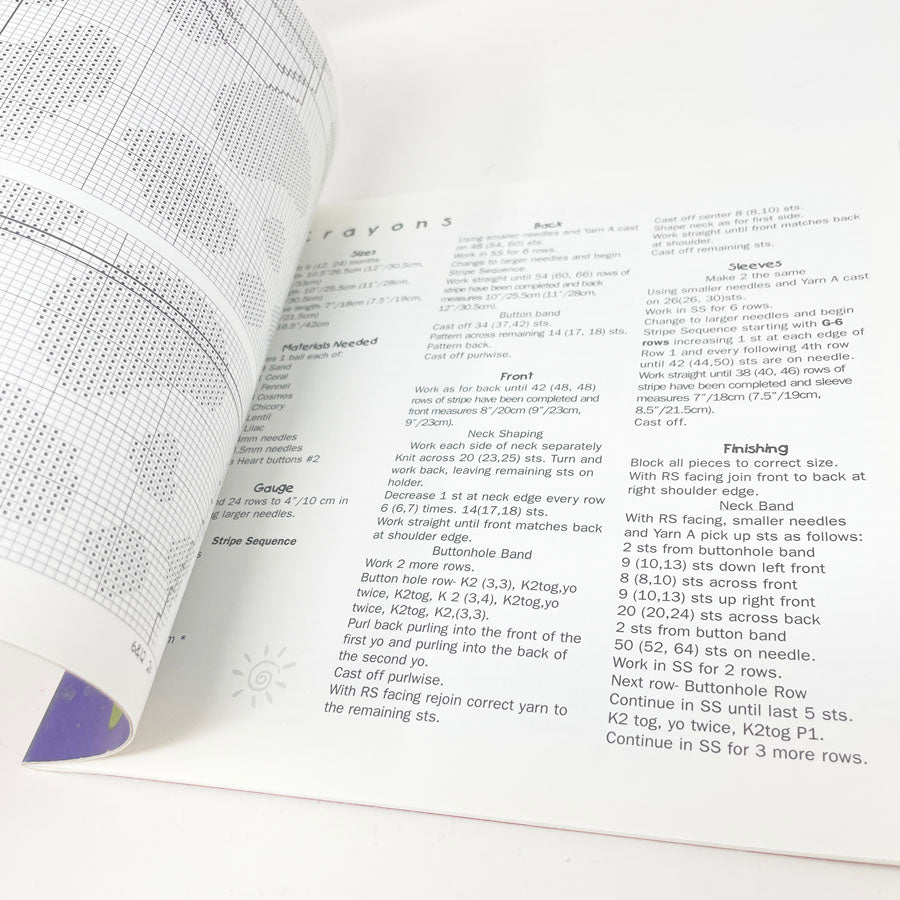 Crayons
Sizes
6 (12, 24) months
10.5"26.5cm (12"/30.5cm,
/33cm)
10"/25.5cm (11"/28cm,
/30.5cm)
length- 7"/18cm (7.5"/19cm,
/21.5cm)
16.5"/42cm
Materials Needed
1 ball each of:
Sand
Coral
Fennel
Cosmos
Chicory
Lentil
Lilac
4mm needles
.5mm needles
Heart buttons #2
Gauge
24 rows to 4"/10 cm in
larger needles.
Stripe Sequence
Back
Using smaller needles and Yarn A cast
on 48 (54, 60) sts.
Work in SS for 6 rows.
Change to larger needles and begin
Stripe Sequence.
Work straight until 54 (60, 66) rows of
stripe have been completed and back
measures 10"/25.5cm (11"/28cm,
12"/30.5cm).
Button band
Cast off 34 (37,42) sts.
Pattern across remaining 14 (17, 18) sts.
Pattern back.
Cast off purlwise.
Front
Work as for back until 42 (48, 48)
rows of stripe have been completed and
front measures 8"/20cm (9"/23cm,
9"/23cm).
Neck Shaping
Work each side of neck separately
Knit across 20 (23,25) sts. Turn and
work back, leaving remaining sts on
holder.
Decrease 1 st at neck edge every row
6 (6,7) times. 14(17,18) sts.
Work straight until front matches back
at shoulder edge.
Buttonhole Band
Work 2 more rows.
Button hole row- K2 (3,3), K2tog,yo
twice, K2tog, K 2 (3,4), K2tog,yo
twice, K2tog, K2,(3,3).
Purl back purling into the front of the
first yo and purling into the back of
the second yo.
Cast off purlwise.
With RS facing rejoin correct yarn to
the remaining sts.
Cast off center 8 (8,10) sts.
Shape neck as for first side.
Work straight until front matches back
at shoulder.
Cast off remaining sts.
Sleeves
Make 2 the same
Using smaller needles and Yarn A cast
on 26(26, 30)sts.
Work in SS for 6 rows.
Change to larger needles and begin
Stripe Sequence starting with G-6
rows increasing 1 st at each edge of
Row 1 and every following 4th row
until 42 (44,50) sts are on needle.
Work straight until 38 (40, 46) rows of
stripe have been completed and sleeve
measures 7"/18cm (7.5"/19cm,
8.5"/21.5cm).
Cast off.
Finishing
Block all pieces to correct size.
With RS facing join front to back at
right shoulder edge.
Neck Band
With RS facing, smaller needles
and Yarn A pick up sts as follows:
2 sts from buttonhole band
9 (10,13) sts down left front
8 (8,10) sts across front
9 (10,13) sts up right front
20 (20,24) sts across back
2 sts from button band
50 (52, 64) sts on needle.
Work in SS for 2 rows.
Next row- Buttonhole Row
Continue in SS until last 5 sts.
K2 tog, yo twice, K2tog P1.
Continue in SS for 3 more rows.